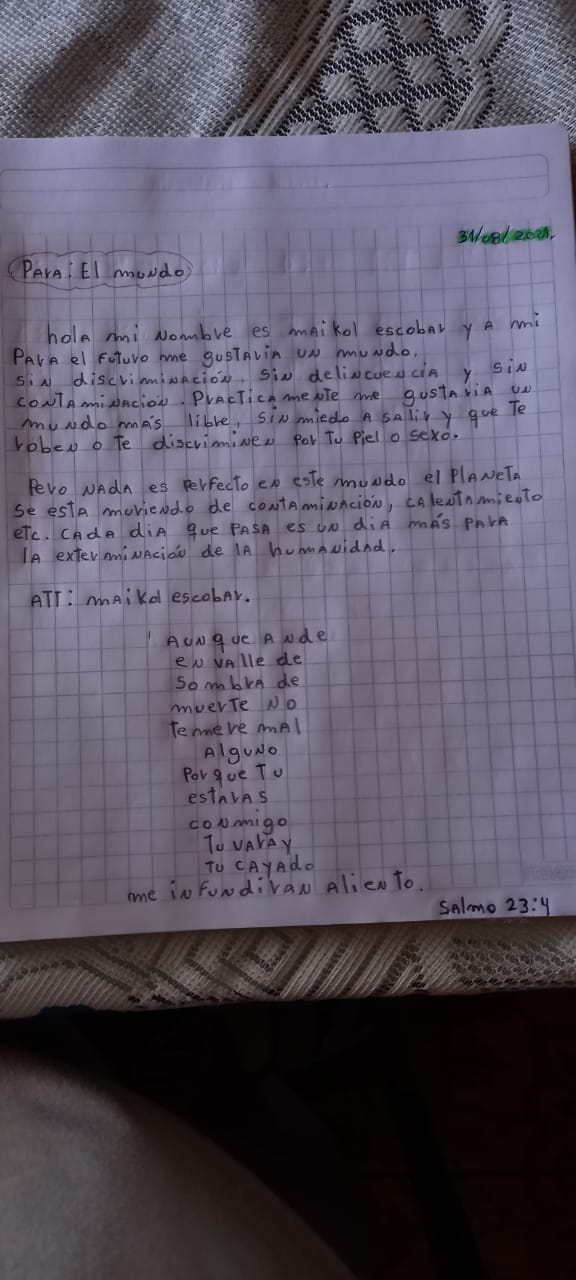 31/08/2021.
Para: El mundo
hola mi nombre es maikol escobar y a mi
Para el futuro me gustaria un mundo.
sin discriminación, sin delincuencia y sin
contaminacion. Practicamente me gustaria un
mundo más libre, sin miedo a salir y que Te
roben o Te discriminen por tu piel o sexo.
Pero nada es perfecto en este mundo el planeta
se esta muriendo de contaminación, calentamiento
etc. Cada dia que pasa es un dia más para
la exterminación de la humanidad.
ATT: maikol escobar.
Aunque ande
en valle de
sombra de
muerte no
temere mal
alguno
Porque tu
estaras
conmigo
Tu vara y
tu cayado
me infundiran aliento.
Salmo 23:4